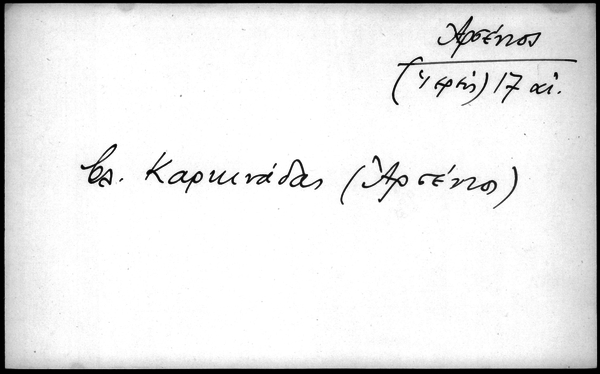 Ἀρσένιος
(ἱερεύς) 17 αἰ.
βλ. Καρκινάδας (Ἀρσένιος)